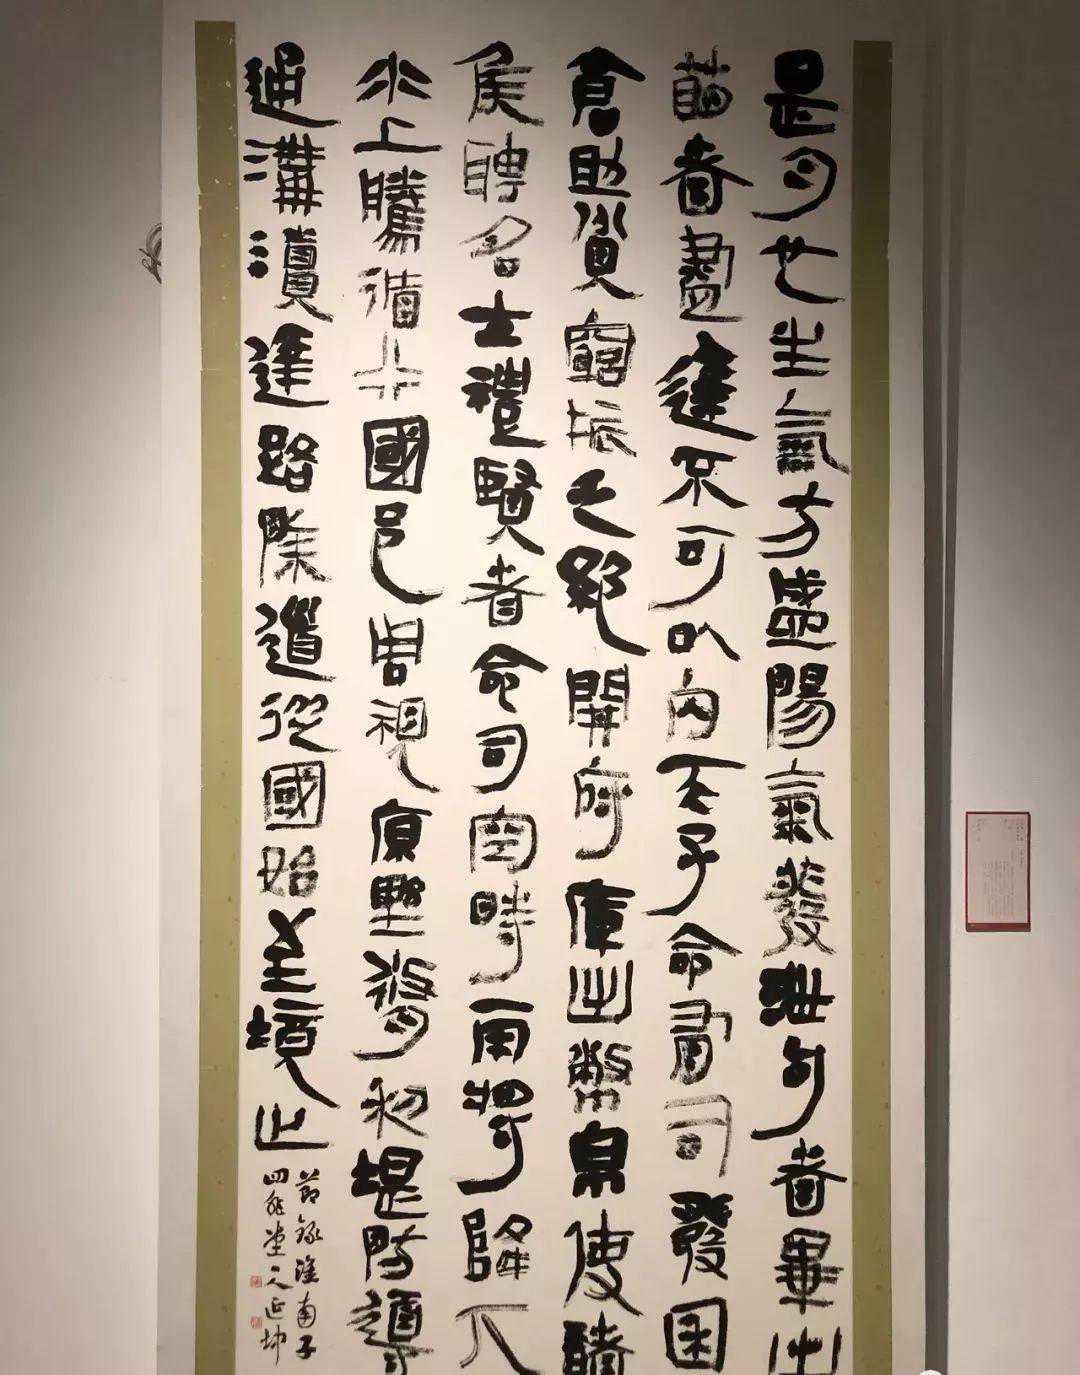 是月也生氣方盛陽氣發泄句者畢出
萌者盡達不可以內天子命有司發囷
倉助貧窮振乏絕開府庫出幣帛使諸
侯聘名士禮賢者命司空時雨將降下
水上騰循行國邑周視原野修利堤防導
通溝瀆達路除道從國始至境止
節錄淮南子
延坤